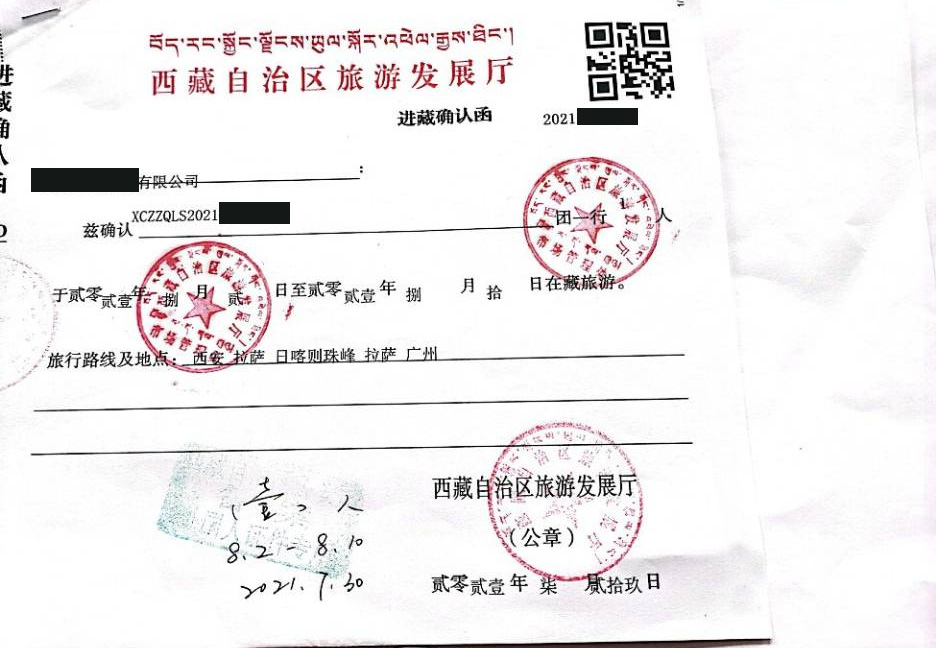 བོད་རང་སྐྱོང་ལྗོངས་ཡུལ་སྐོར་འཕེལ་རྒྱས་ཐིང་།
西藏自治区旅游发展厅
进藏确认函
2021
有限公司
：
兹确认 XCZZQLS2021 团一行 1 人
于贰零贰壹年 捌 月 贰 日至贰零贰壹年 捌 月 拾 日在藏旅游。
旅行路线及地点：西安 拉萨 日喀则珠峰 拉萨 广州
西藏自治区旅游发展厅
（公章）
贰零贰壹 年 柒 月 贰拾玖 日
（壹）人
8.2-8.10
2021.7.30
进藏确认函
西藏自治区旅游发展厅
西藏自治区旅游发展厅